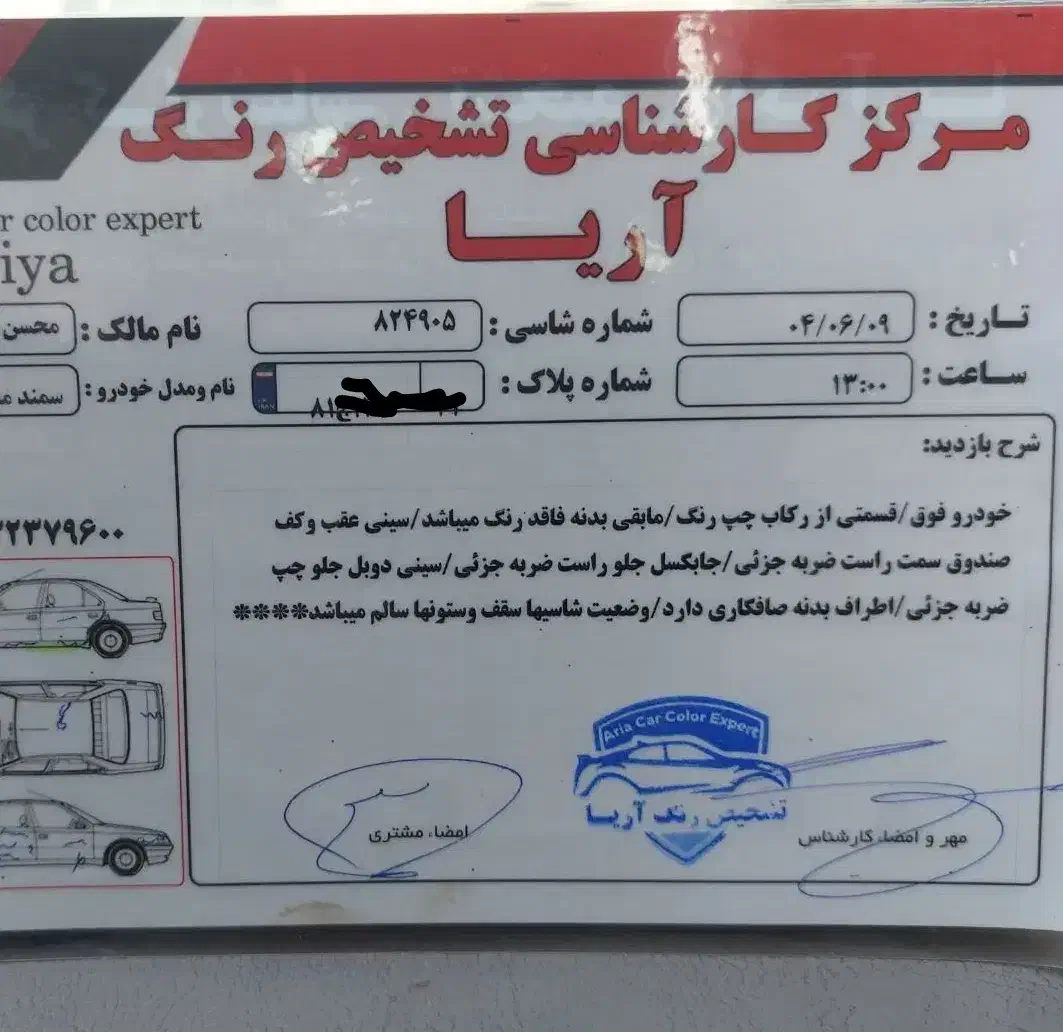 مرکز کارشناسی تشخیص رنگ
آریا
r color expert
iya
تاریخ : ۰۴/۰۶/۰۹
شماره شاسی : ۸۲۴۹۰۵
نام مالک : محسن
ساعت : ۱۳:۰۰
شماره پلاک :
نام ومدل خودرو : سمند
شرح بازدید:
خودرو فوق/قسمتی از رکاب چپ رنگ/مابقی بدنه فاقد رنگ میباشد/سینی عقب وکف
صندوق سمت راست ضربه جزئی/جابکسل جلو راست ضربه جزئی/سینی دوبل جلو چپ
ضربه جزئی/اطراف بدنه صافکاری دارد/وضعیت شاسیها سقف وستونها سالم میباشد****
۲۲۳۷۹۶۰۰
Aria Car Color Expert
تشخیص رنگ آریا
مهر و امضا، کارشناس
امضا، مشتری